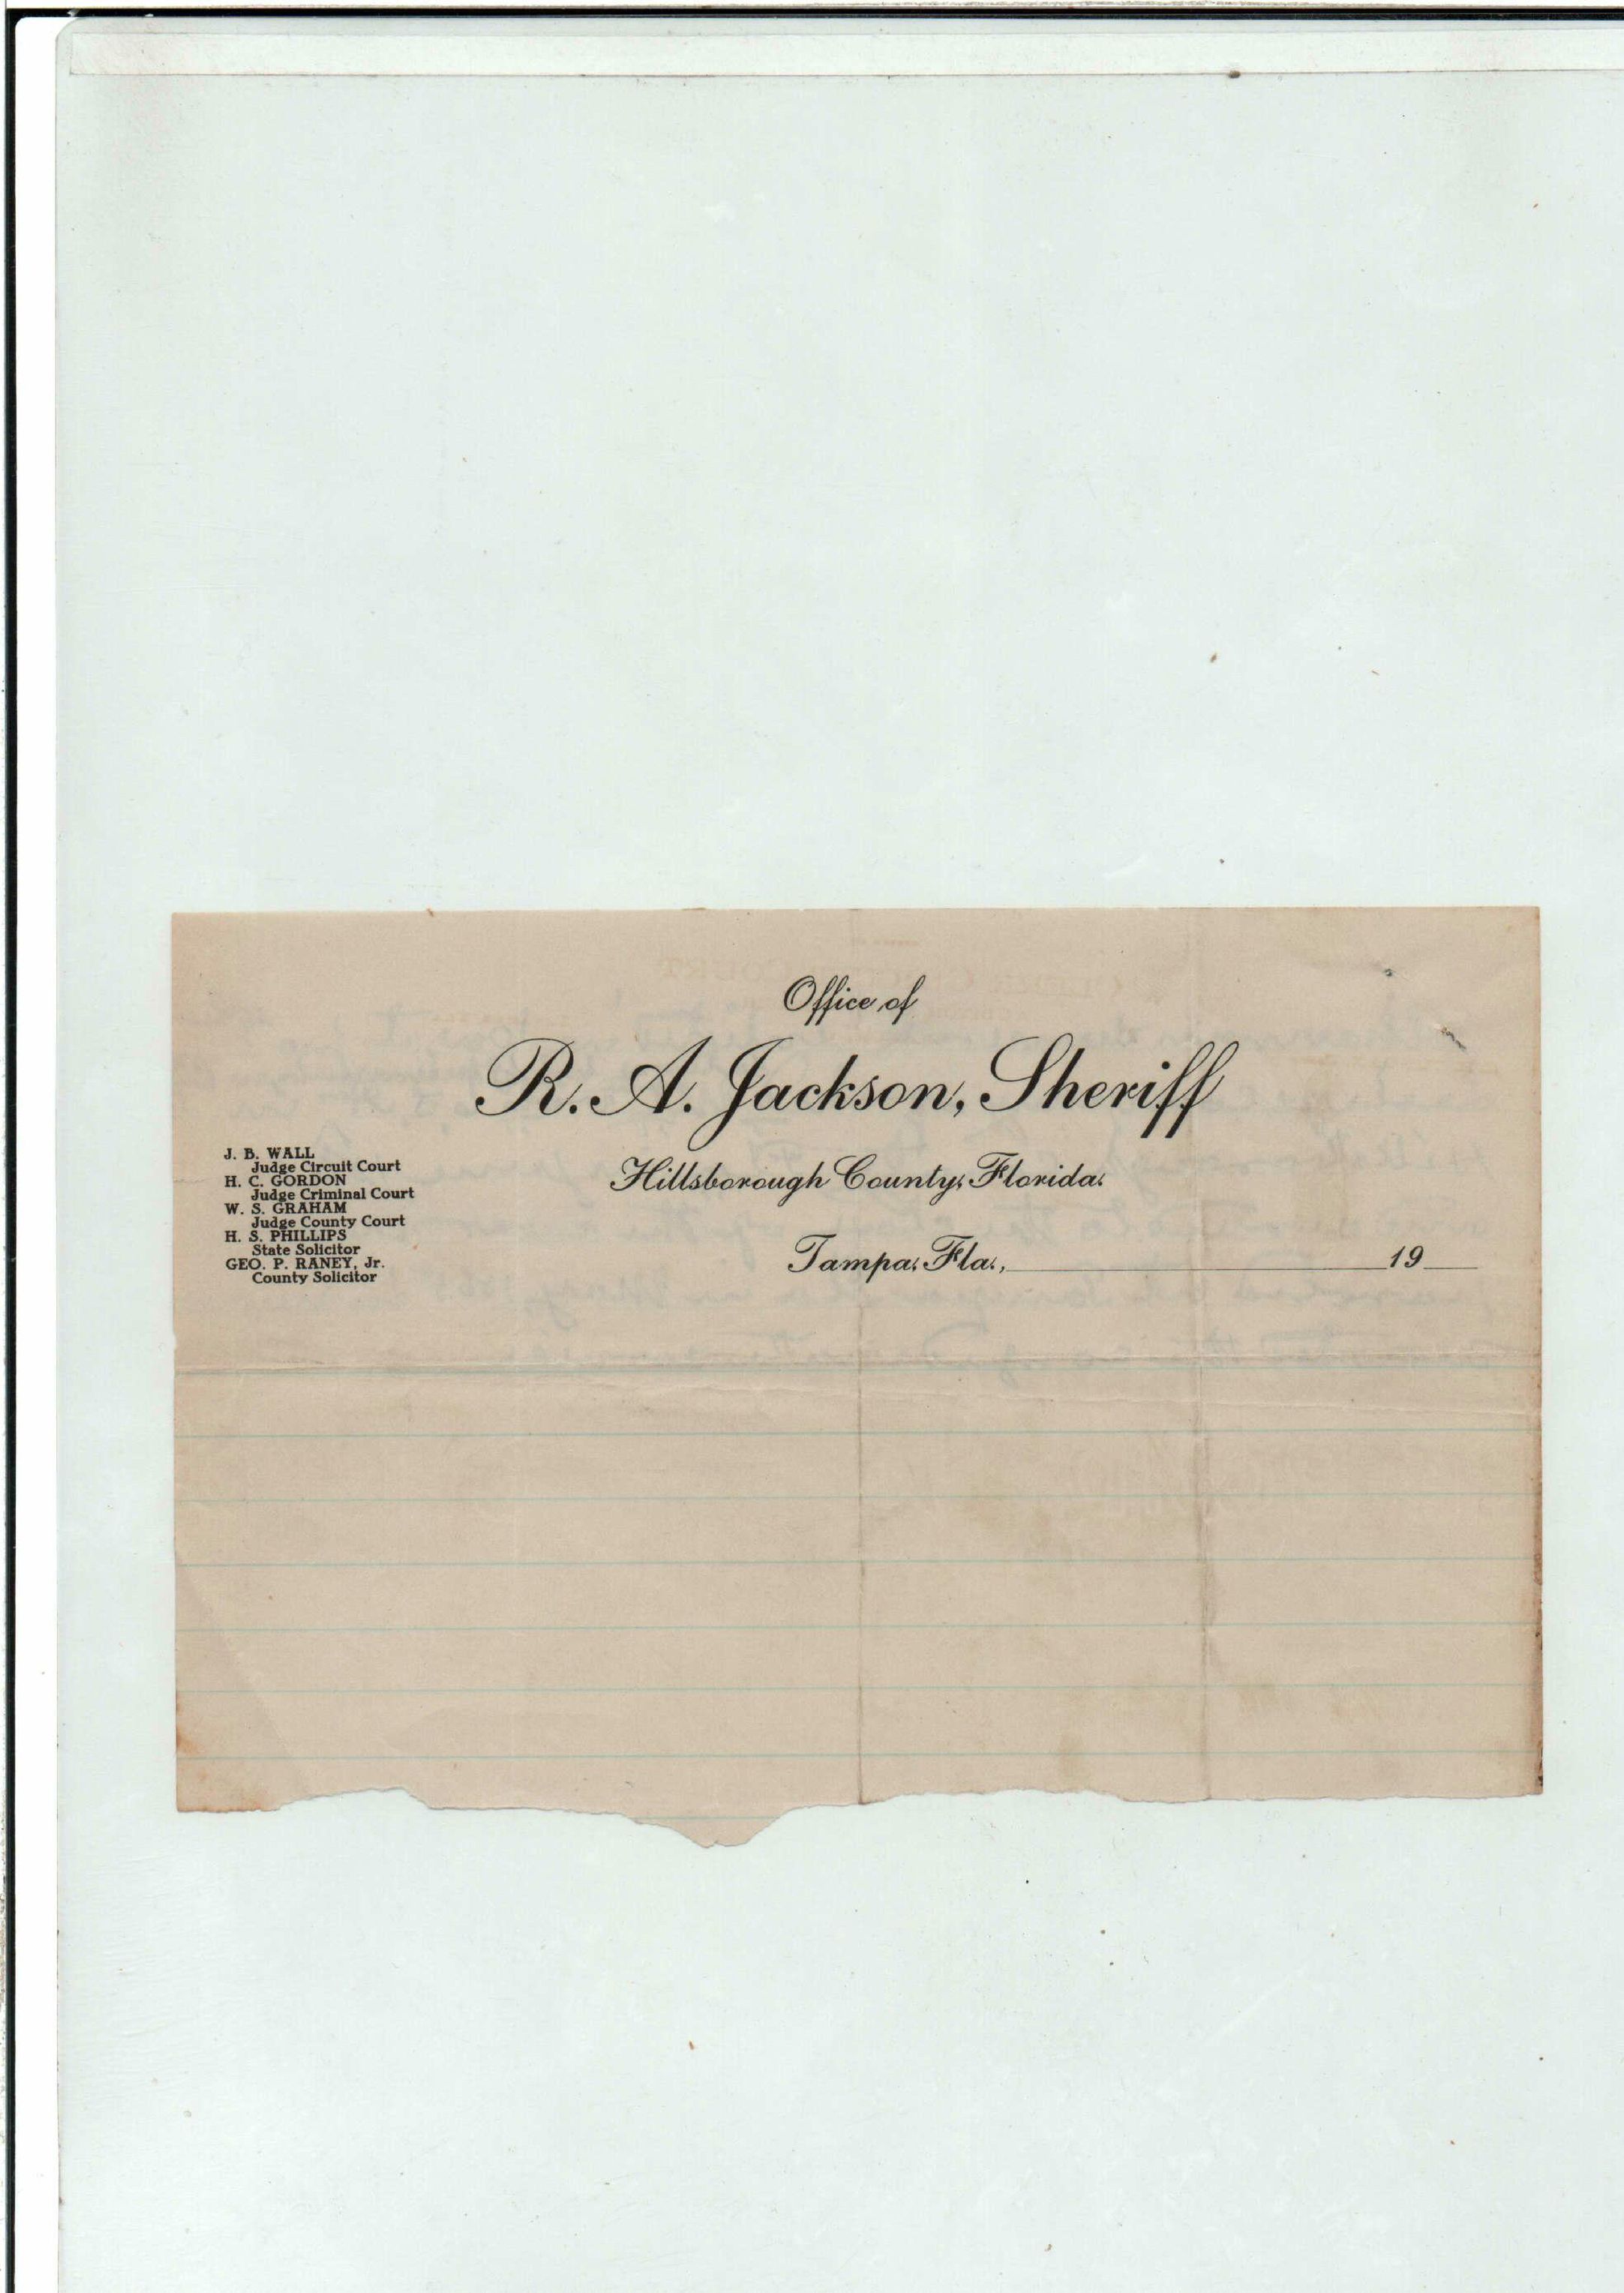 Office of
R. A. Jackson, Sheriff
Hillsborough County, Florida.
Tampa, Fla., 19
J. B. WALL
Judge Circuit Court
H. C. GORDON
Judge Criminal Court
W. S. GRAHAM
Judge County Court
H. S. PHILLIPS
State Solicitor
GEO. P. RANEY, Jr.
County Solicitor